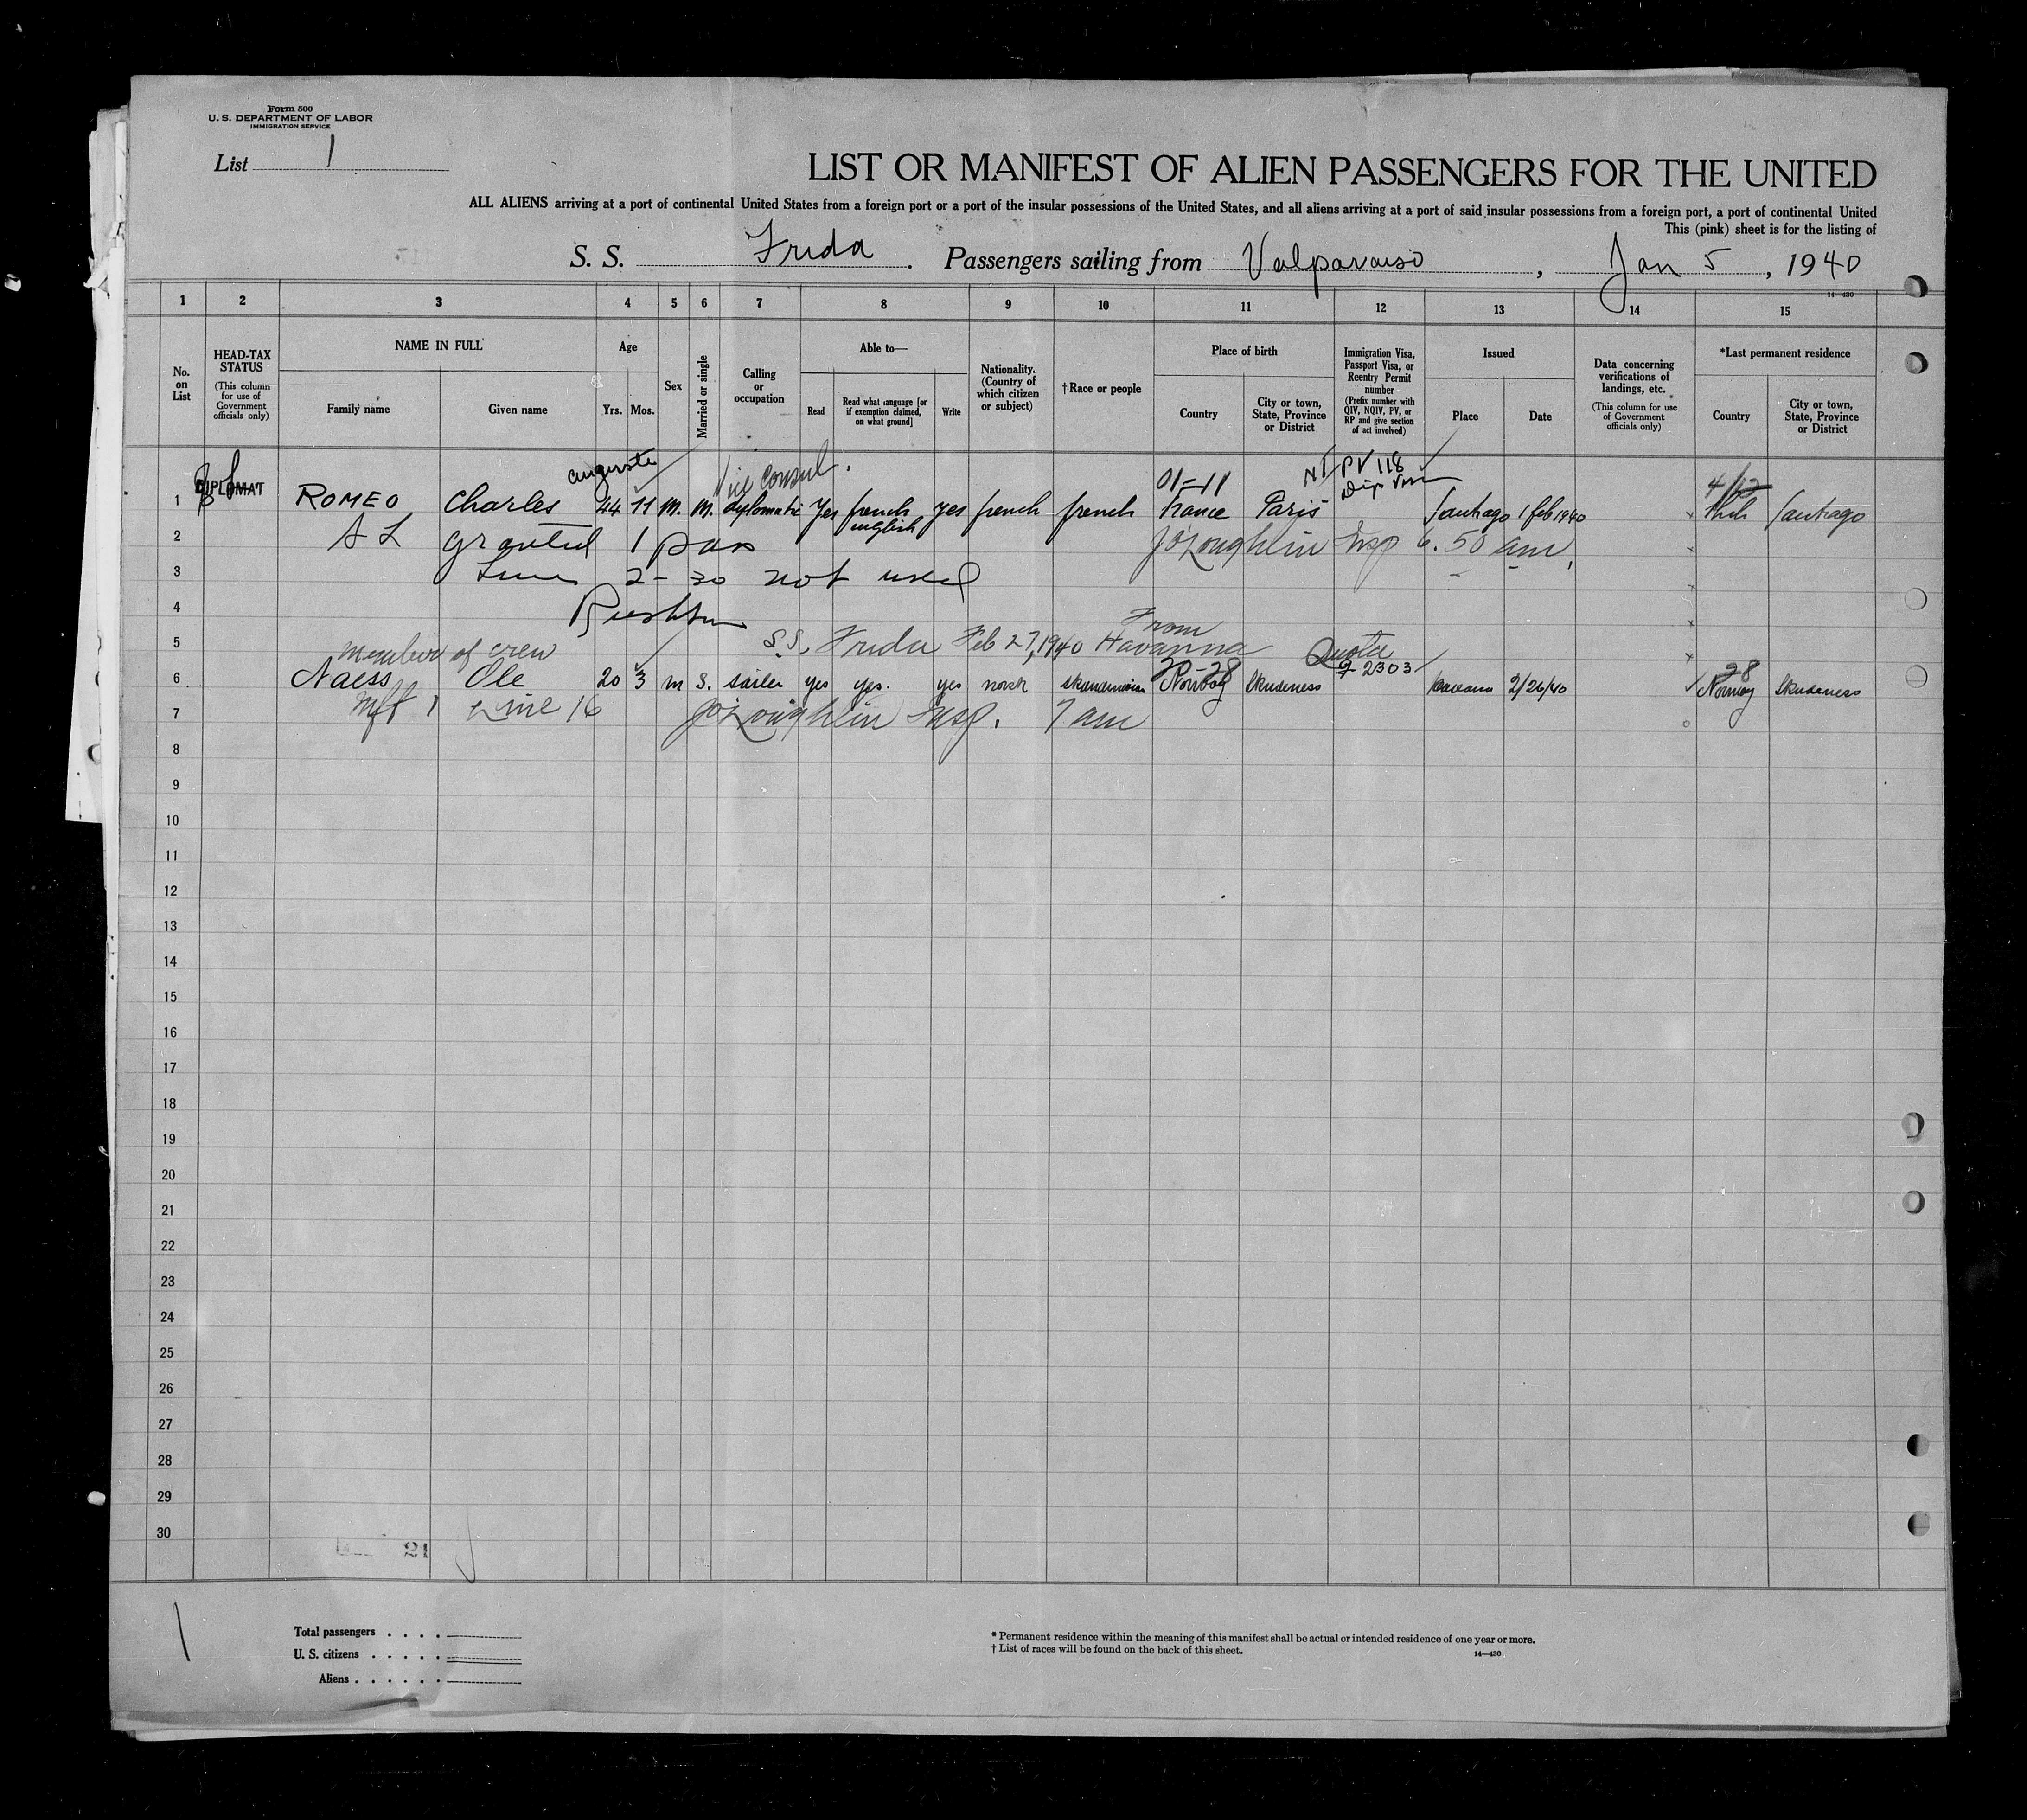 Form 500
U. S. DEPARTMENT OF LABOR
IMMIGRATION SERVICE
List 1
LIST OR MANIFEST OF ALIEN PASSENGERS FOR THE UNITED
ALL ALIENS arriving at a port of continental United States from a foreign port or a port of the insular possessions of the United States, and all aliens arriving at a port of said insular possessions from a foreign port, a port of continental United
This (pink) sheet is for the listing of
S. S. Frida. Passengers sailing from Valparaiso, Jan 5, 1940
14—430
1 2 3 4 5 6 7 8 9 10 11 12 13 14 15
No. on List
HEAD-TAX STATUS (This column for use of Government officials only)
NAME IN FULL
Family name Given name
Age
Yrs. Mos.
Sex
Married or single
Calling or occupation
Able to—
Read Read what language [or if exemption claimed, on what ground] Write
Nationality. (Country of which citizen or subject)
†Race or people
Place of birth
Country City or town, State, Province or District
Immigration Visa, Passport Visa, or Reentry Permit number (Prefix number with QIV, NQIV, PV, or RP and give section of act involved)
Issued
Place Date
Data concerning verifications of landings, etc. (This column for use of Government officials only)
*Last permanent residence
Country City or town, State, Province or District
auguste Vice Consul. 01-11 PV 118
1 DIPLOMAT ROMEO Charles 44 11 M. M. diplomatic Yes french english yes french french france Paris Santiago 1 feb 1940 Santiago
2 granted 1 pass J O'Loughlin Insp 6.50 am,
3 Lines 2-30 not used
4
5 member of crew S.S. Frida Feb 27, 1940 From Havanna Quota
6 Naess Ole 20 3 m S. sailer yes yes. yes norsk skandinavian Norway Skudeness 2303 2/26/40 28 Norway Skudeness
7 Mft 1 Line 16 J O'Loughlin Insp. 7 am
8
9
10
11
12
13
14
15
16
17
18
19
20
21
22
23
24
25
26
27
28
29
30
21
1
Total passengers
U. S. citizens
Aliens
* Permanent residence within the meaning of this manifest shall be actual or intended residence of one year or more.
† List of races will be found on the back of this sheet.
14—430